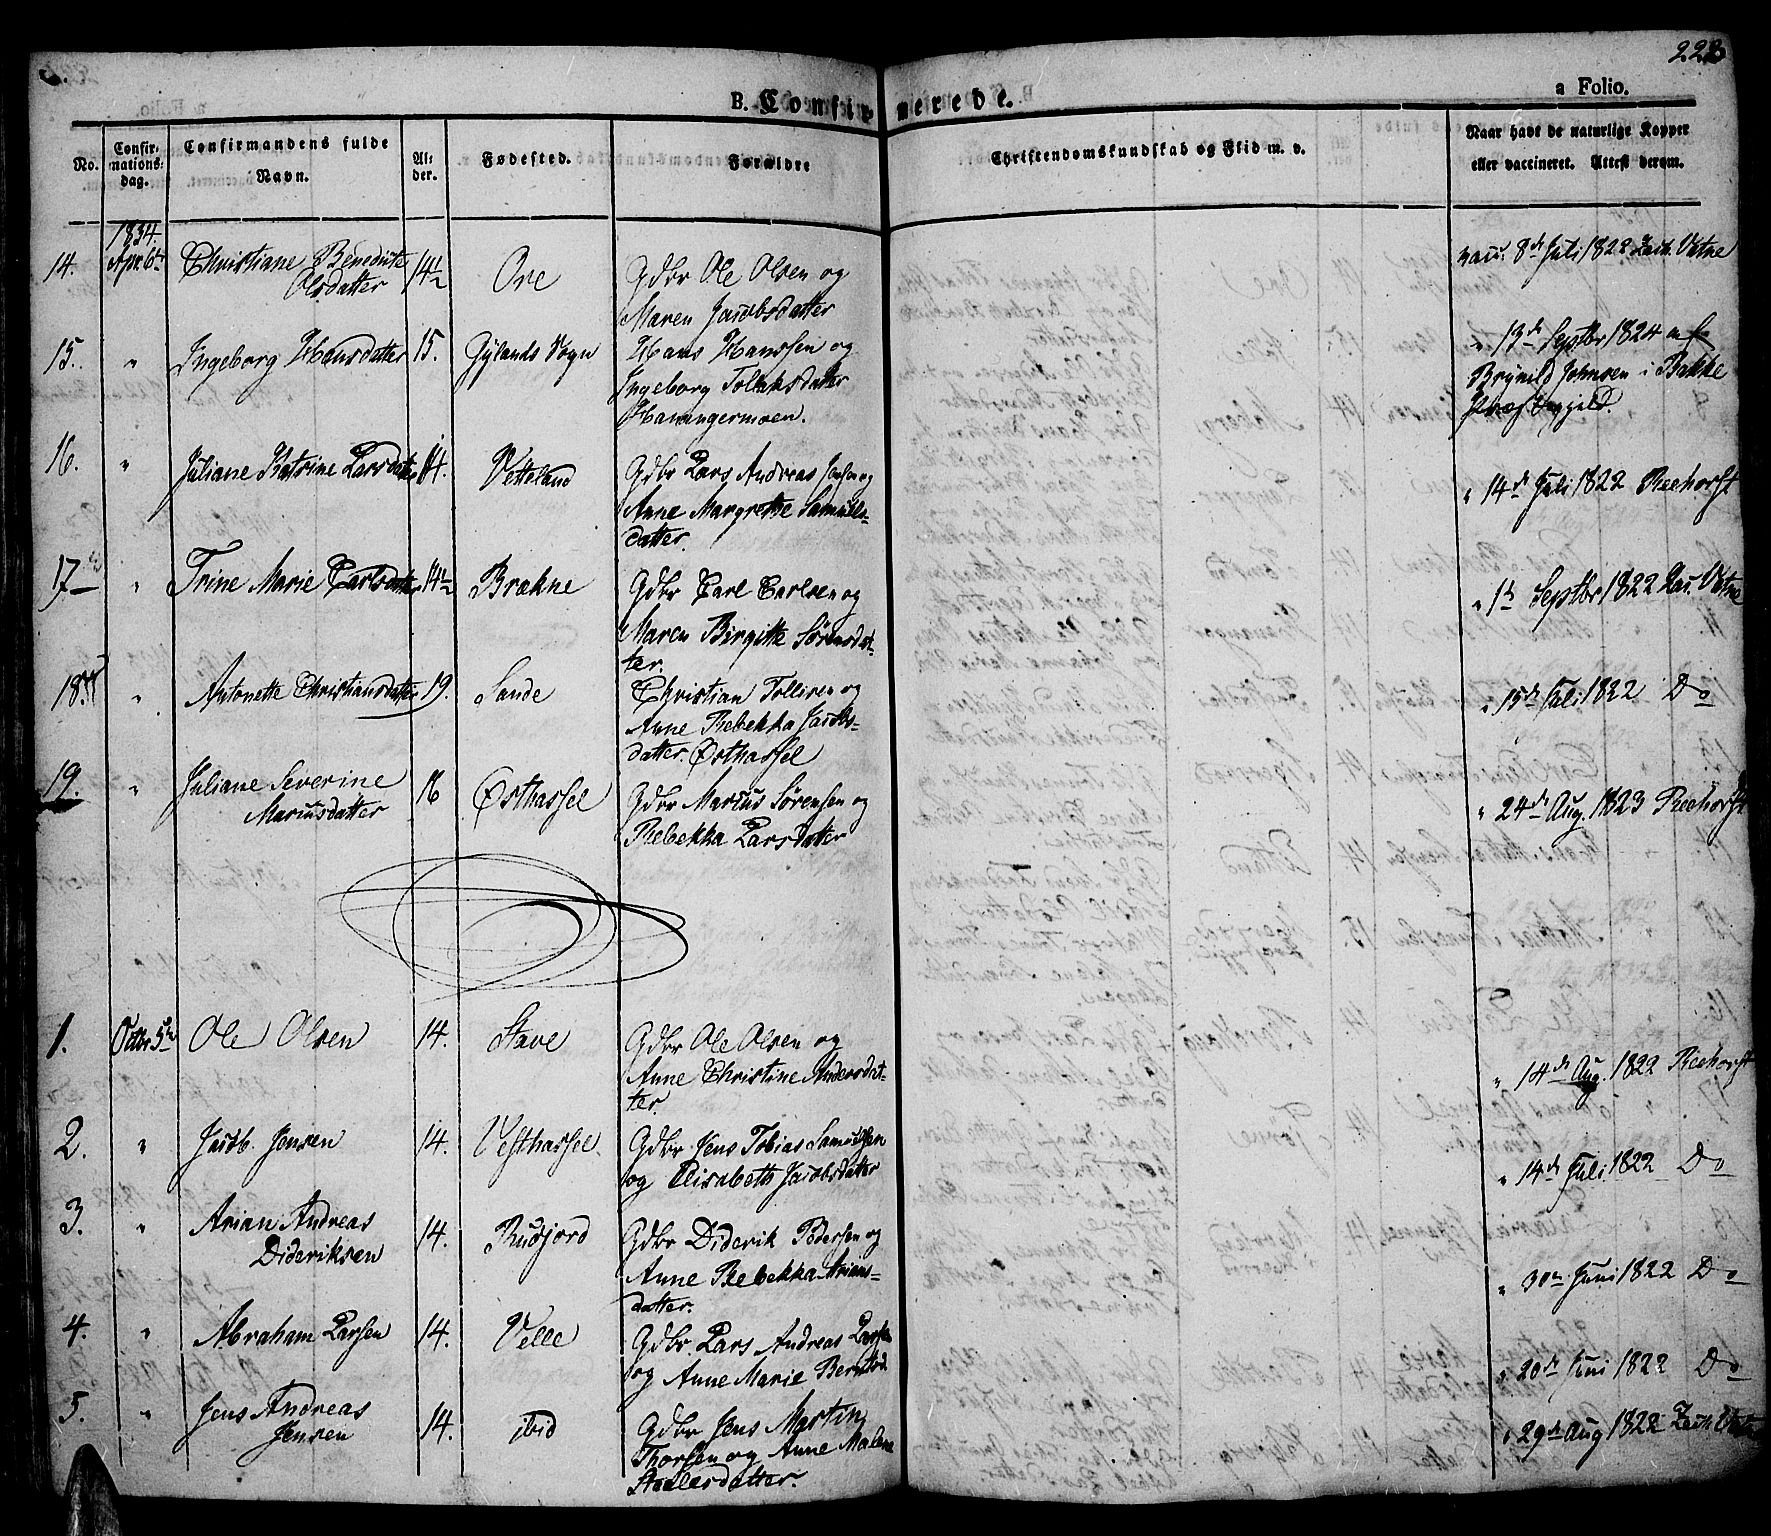 223
a Folio.
B. Confirmerede.
No.
Confir-
mations-
dag.
Confirmandens fulde
Navn.
Al-
der.
Fødested.
Forældre
Christendomskundskab og Flid m. v.
Naar havt de naturlige Kopper
eller vaccineret. Attest derom.
1834.
14. Apr. 6te Christiane Benedicte 14½ Ore Gdbr Ole Olsen og vacc. 8de Juli 1822 Zach. Vatne
Olsdatter Maren Jacobsdatter
15. " Ingeborg Hansdatter 15. Gylands Sogn Hans Hanssen og " 13de Septbr 1824 af
Ingeborg Tollaksdatter Brynild Johnsen i Bakke
Præstegjeld.
16. " Juliane Katrine Larsdatter 14. Vetteland Gdbr Lars Andreas Jensen og " 14de Juli 1822 Reehorst
Anne Margrethe Samuels-
datter.
17 " Trine Marie Carlsdatter 14½ Brækne Gdbr Carl Carlsen og " 1te Septbr 1822 Zac. Vatne
Maren Birgitte Sørensdat-
ter.
18. " Antonette Christiansdatter 19. Sande Christian Tollisen og " 15de Juli 1822 Do
Anne Rebekka Jacobs-
datter. Østhassel
19. " Juliane Severine 16 Østhassel Gdbr Marcus Sørensen og " 24de Aug. 1823 Reehorst
Marcusdatter Rebekka Larsdatter
1. Octbr 5te Ole Olsen 14. Stave Gdbr Ole Olsen og " 14de Aug. 1822 Reehorst
Anne Christine Andersdat-
ter.
2. " Jacob Jensen 14. Vesthassel. Gdbr Jens Tobias Samuelsen " 14de Juli 1822 Do
og Elisabeth Jacobsdatter
3. " Arian Andreas 14. Rudjord Gdbr Diderik Pedersen og " 30te Juni 1822 Do
Dideriksen Anne Rebekka Arians-
datter.
4. " Abraham Larsen 14. Velle Gdbr. Lars Andreas Larsen " 20de Juni 1822 Do
og Anne Marie Berntsd.
5. " Jens Andreas 14. ibid Gdbr Jens Martin " 29de Aug 1822 Zach Vatne
Jensen Thorsen og Anne Malene
Staalesdatter.